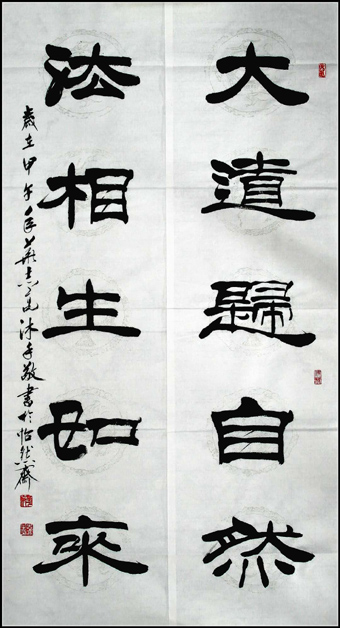 大道歸自然
法相生如來
歲在甲午年
沐手敬書於怡然齋